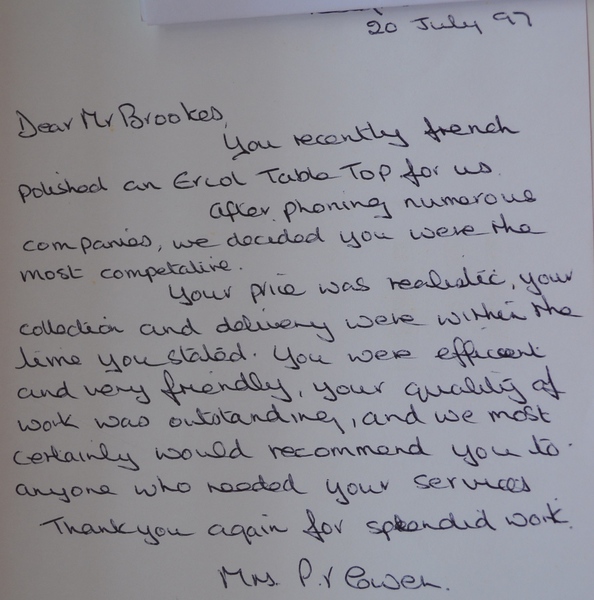 20 July 97
Dear Mr Brookes,
You recently french
polished an Ercol Table Top for us.
After phoning numerous
companies, we decided you were the
most competative.
Your price was realistic, your
collection and delivery were within the
time you stated. You were efficient
and very friendly, your quality of
work was outstanding, and we most
certainly would recommend you to
anyone who needed your services
Thankyou again for splendid work.
Mrs. P.